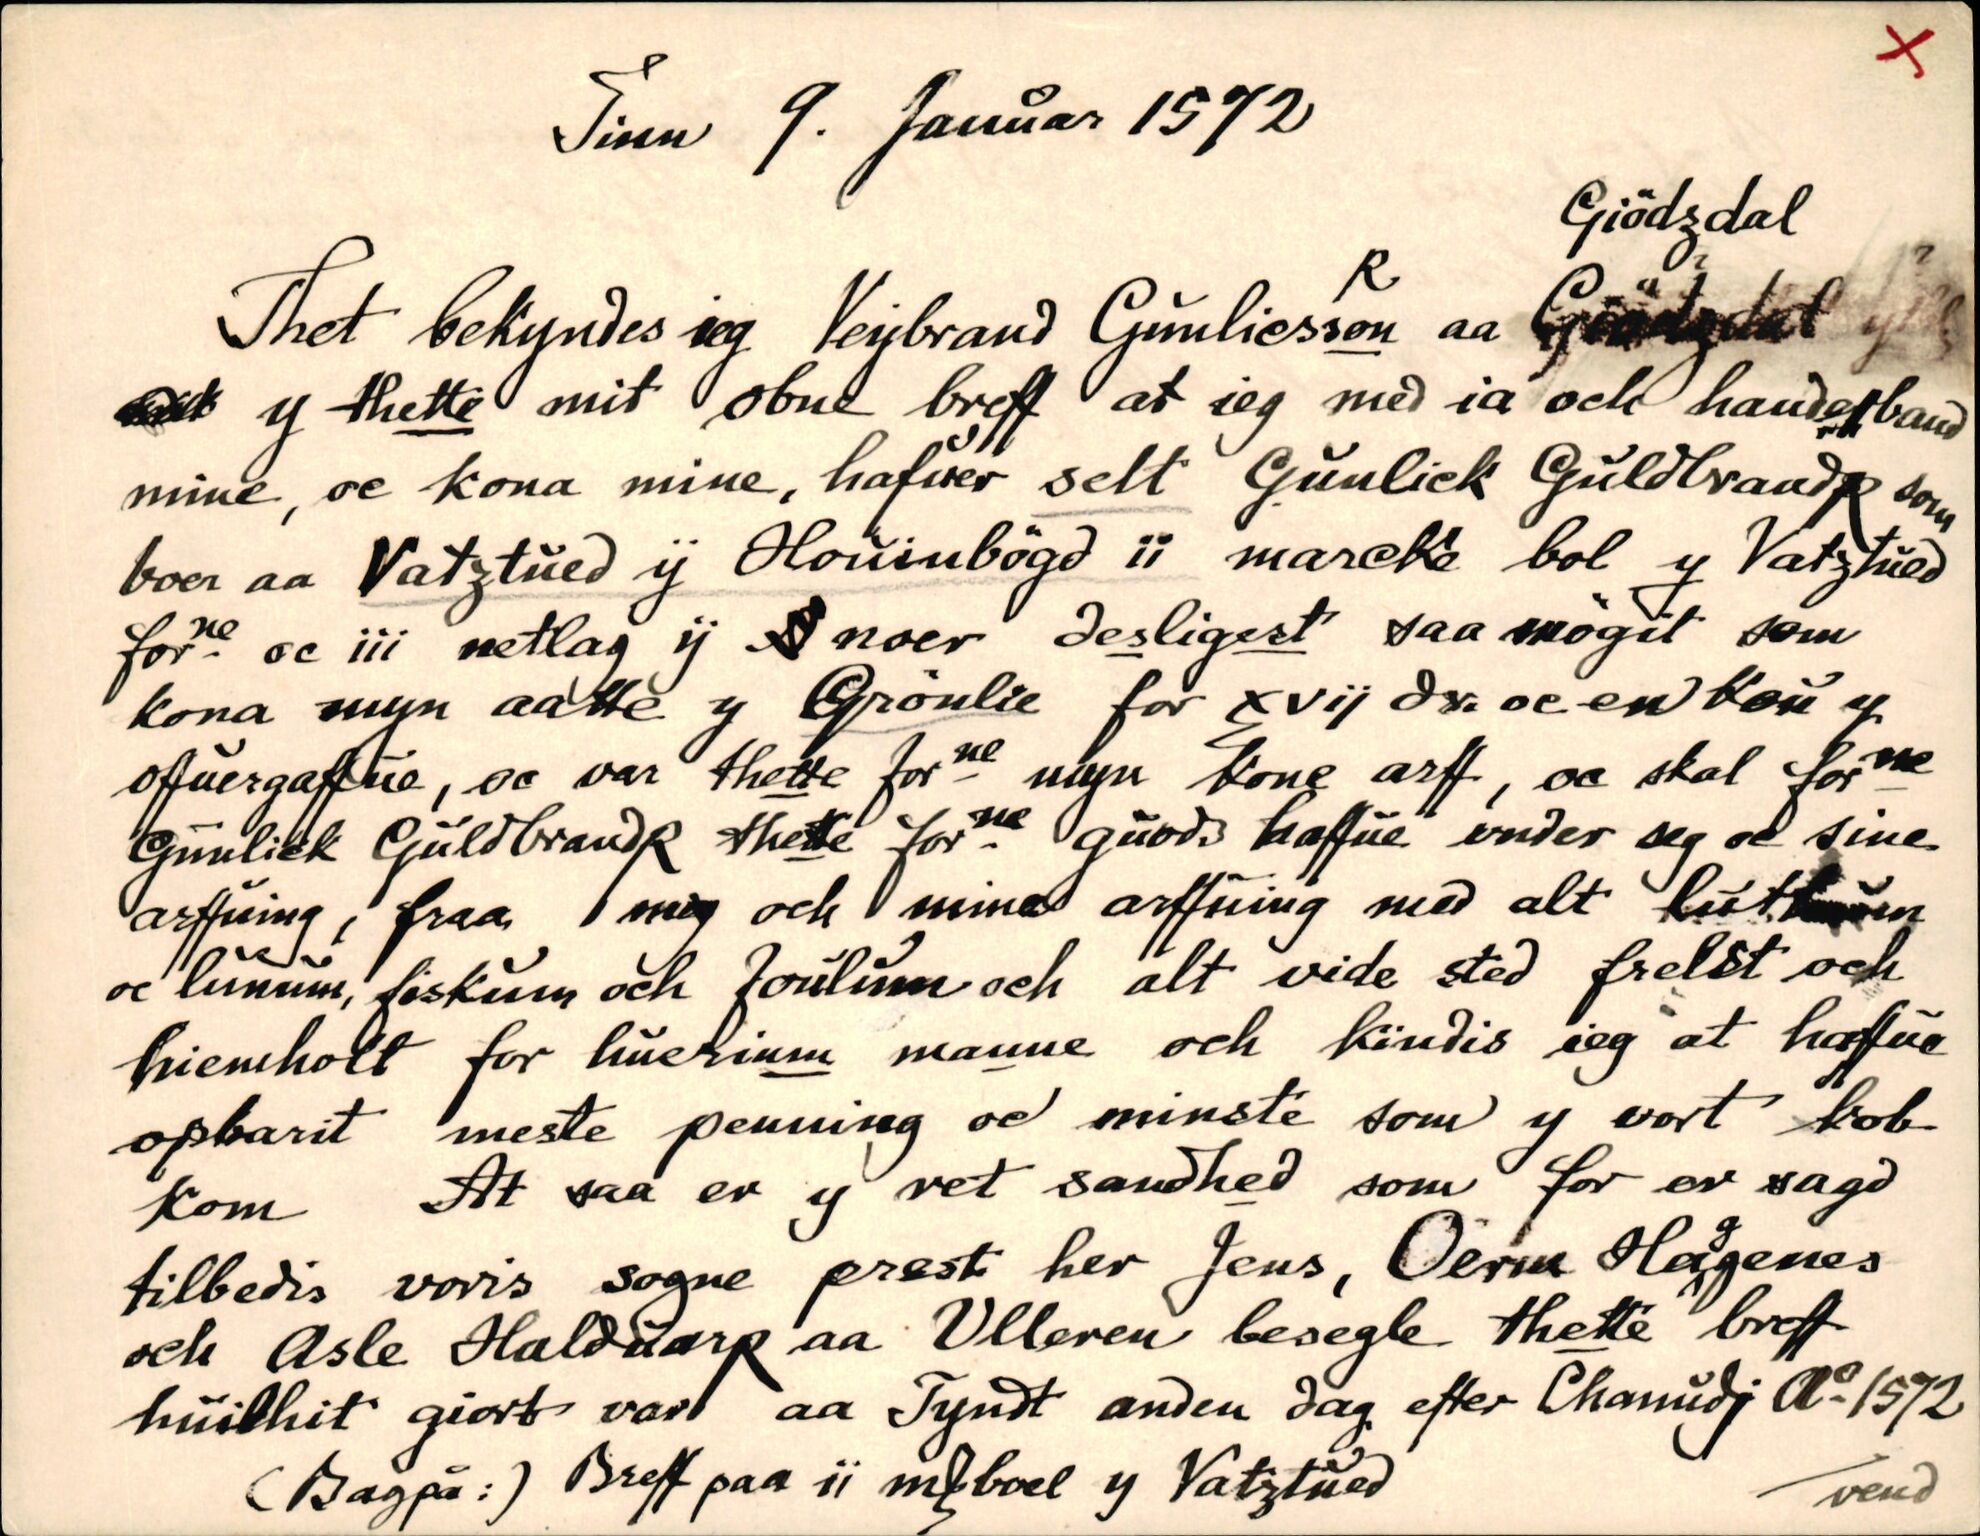 Tinn 9. Januar 1572
Giödzdal
Thet bekyndes ieg Veybrand Gunlicsson R aa Giödzdal
y thette mit obne breff at ieg med ia och handerband
mine, oc kona mine, hafuer selt Gunlick GuldbrandR som
boer aa Vatztued ÿ Houinbögd ii marcke bol y Vatztued
forne oc iii netlag ÿ noer desligest saa mögit som
kona myn aatte y Grönlie for xvij dr. oc en kou y
offuergaffue, oc var thette forne myn kone arff, oc skal forne
Gunliek GuldbrandR thette forne guods haffue vnder seg oc sine
arffuing, fraa mig och mine arffuing med alt
oc lunum, fiskum och foulum och alt vide sted frelst och
hiemholt for huerium manne och kindis ieg at haffue
opbarit meste penning oc minste som y vort kob
kom At saa er y ret sandhed som for er sagd
tilbedis voris sogne prest her Jens, Oerm Hagenes
och Asle HalduarR aa Vlleren besegle thette breff
huilhit giort var aa Tyndt anden dag efter Chanudj Ao. 1572
(Bagpå:) Breff paa ii m boel y Vatztued
vend